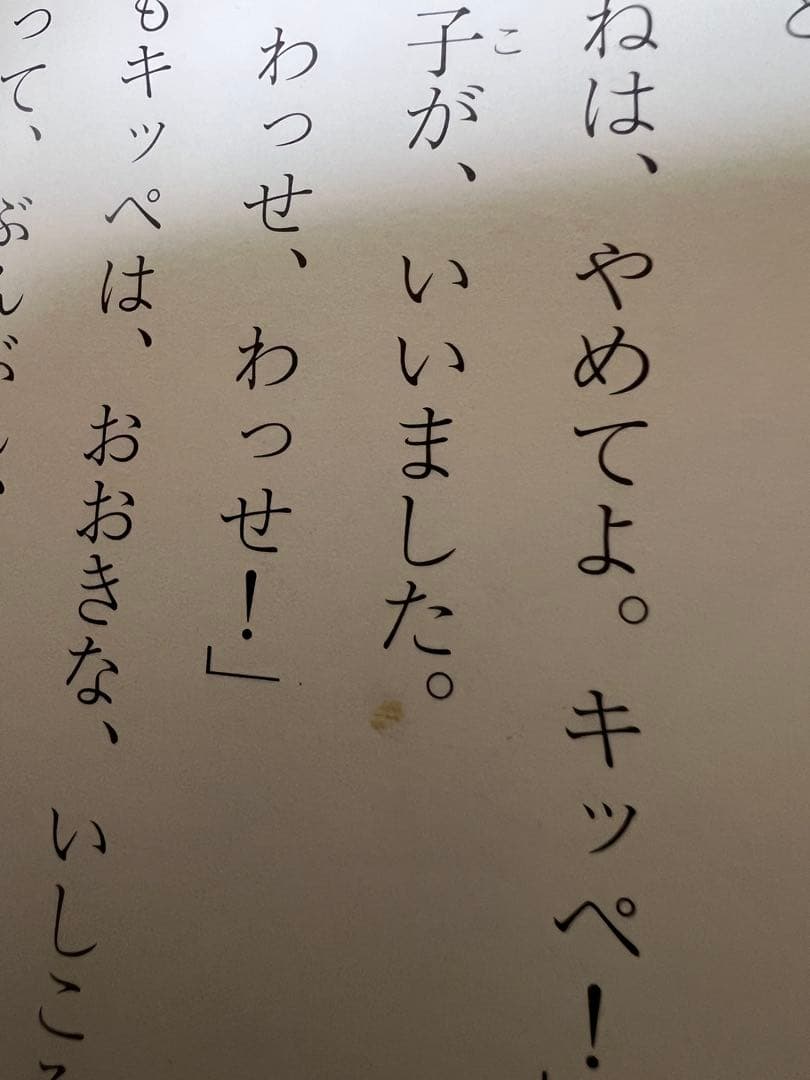 ねは、やめてよ。キッペ！
子が、いいました。
こ
わっせ、わっせ！」
もキッペは、おおきな、いしころ
って、ぶんぶん